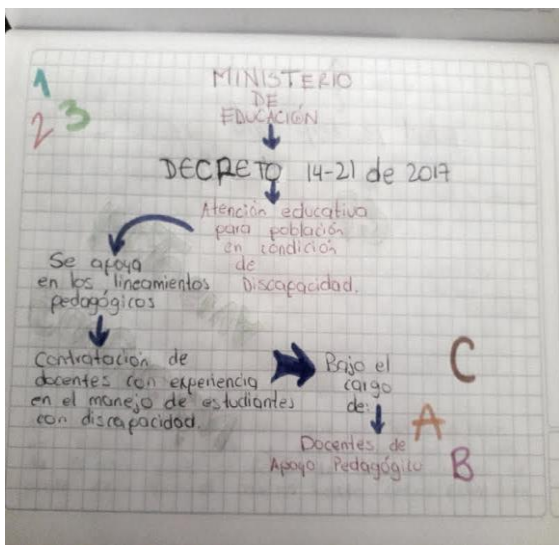 1
2 3
MINISTERIO
DE
EDUCACIÓN
DECRETO 14-21 de 2017
Atención educativa
para población
en condición
de
Discapacidad.
Se apoya
en los lineamientos
pedagógicos
Contratación de
docentes con experiencia
en el manejo de estudiantes
con discapacidad.
Bajo el
cargo
de:
Docentes de
Apoyo Pedagógico
C
A
B